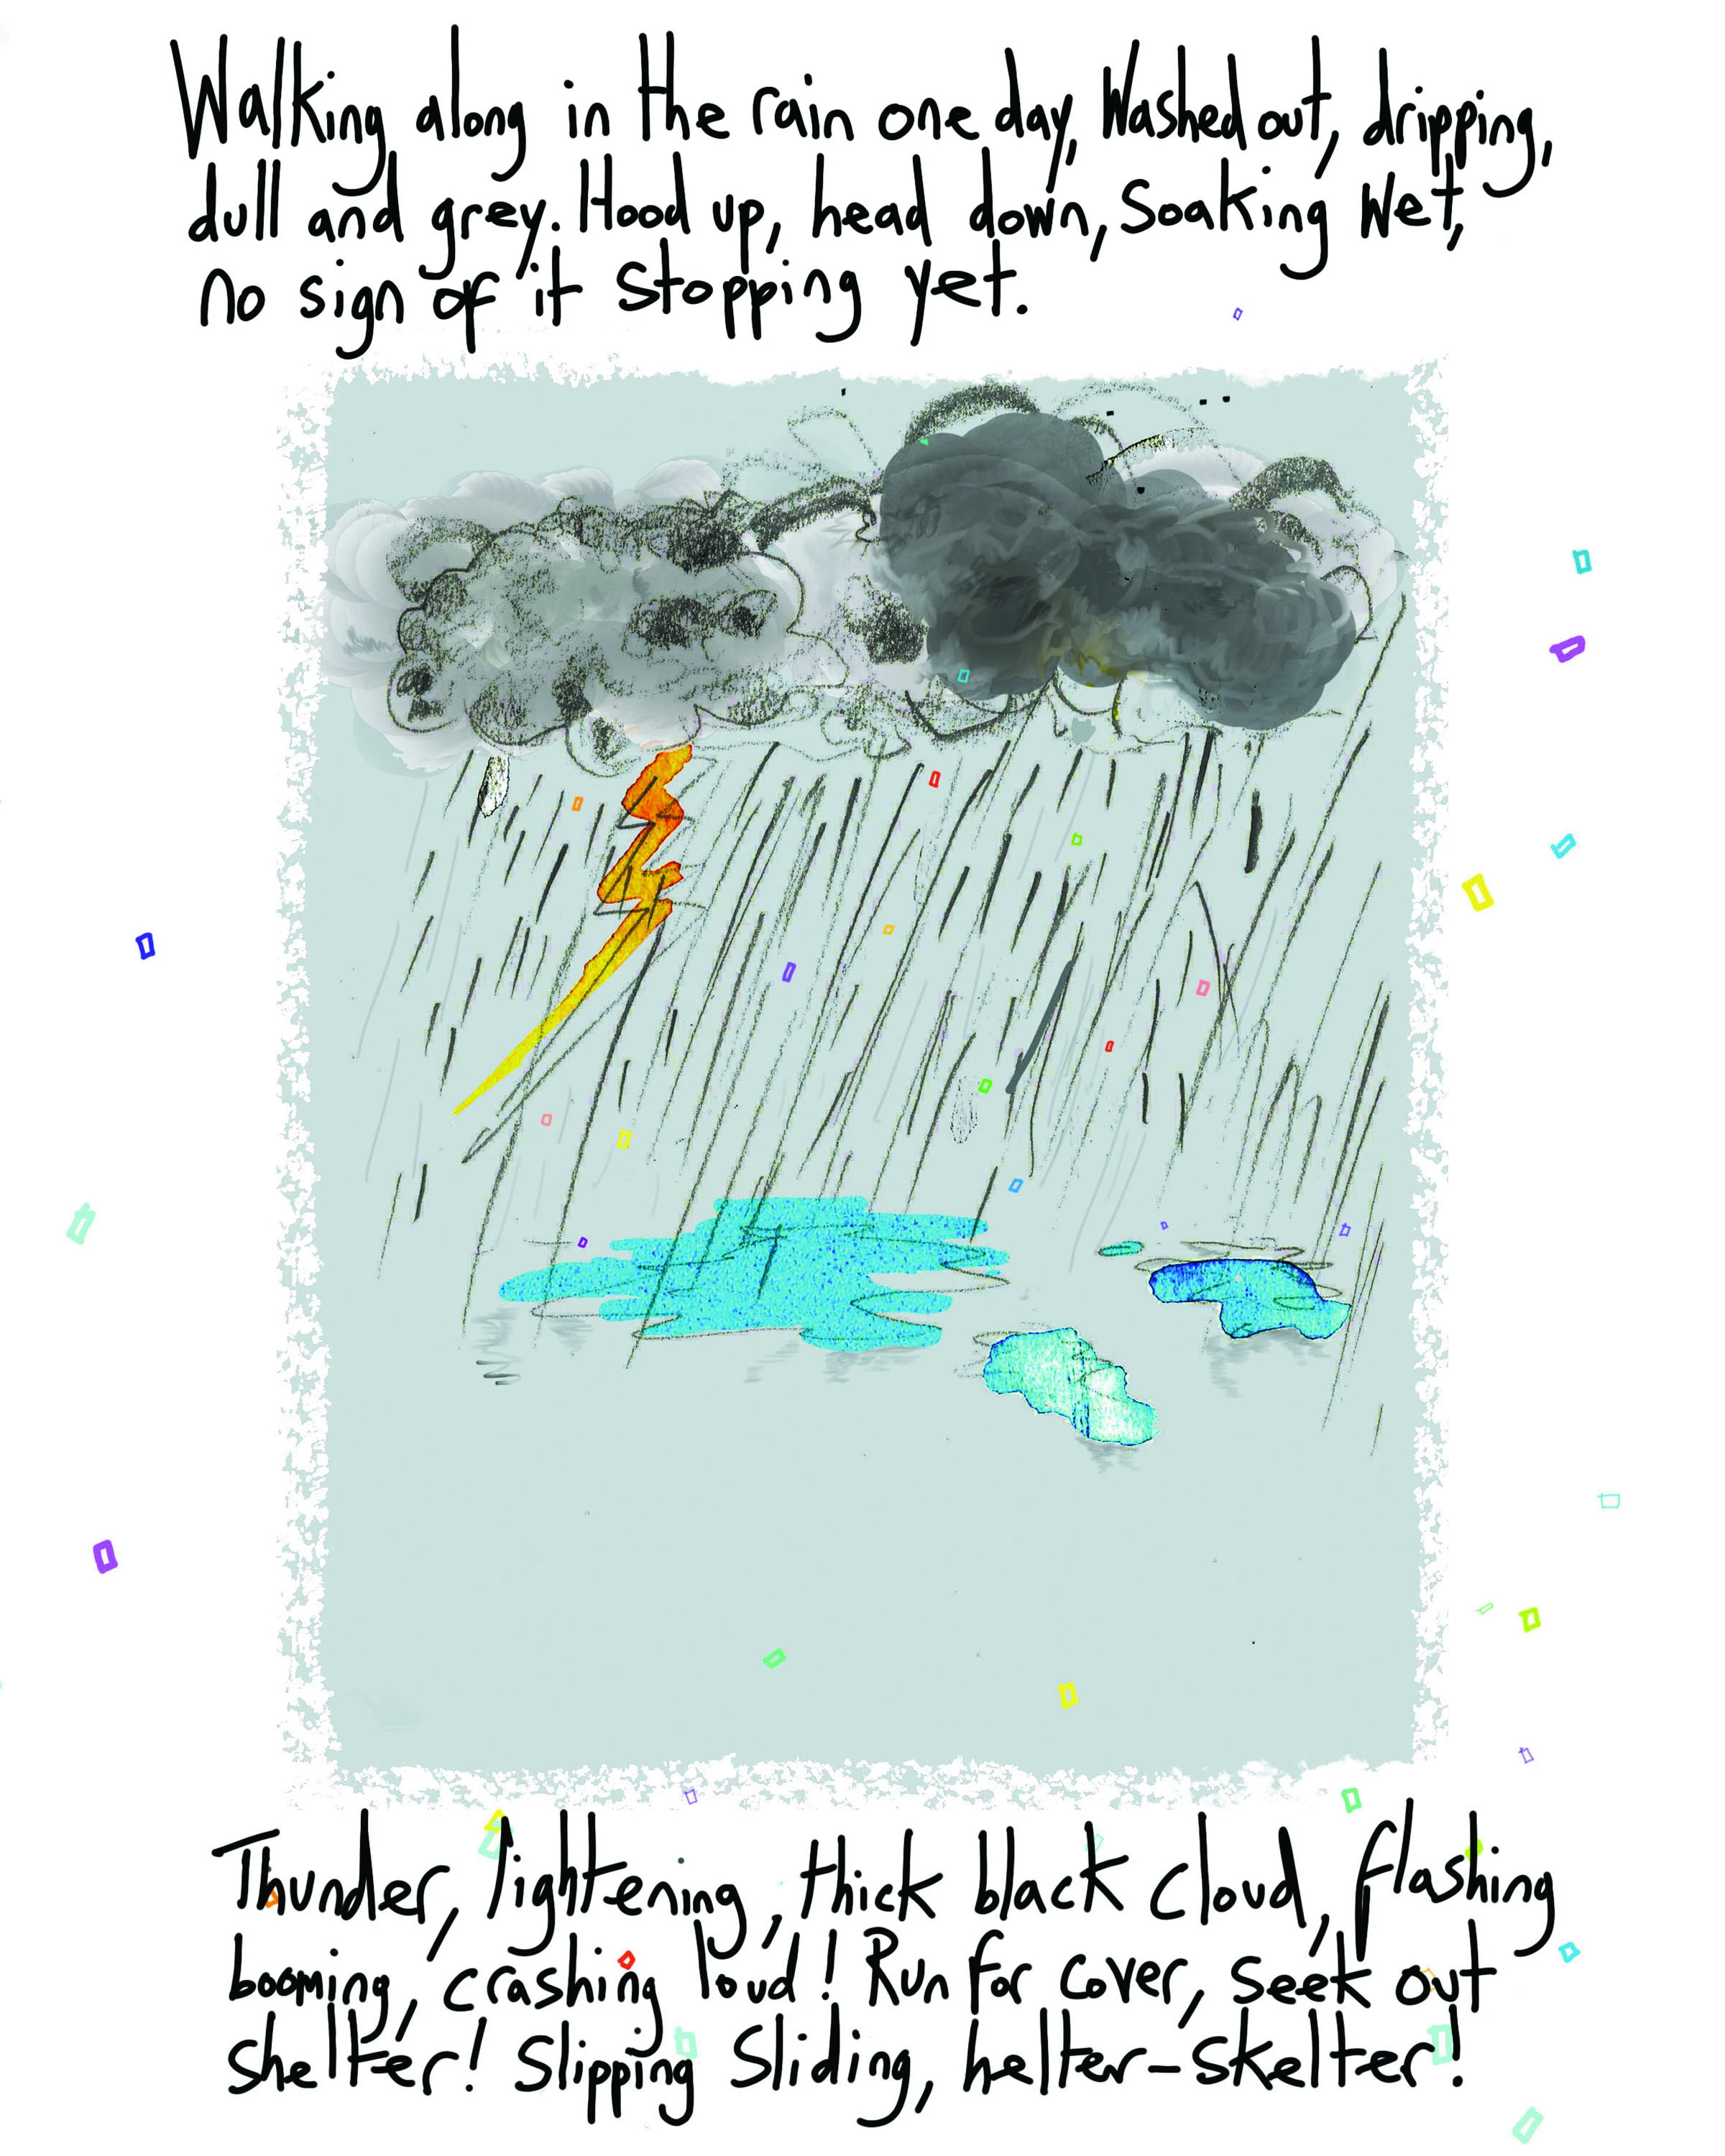 Walking along in the rain one day, Washed out, dripping,
dull and grey. Hood up, head down, Soaking Wet,
no sign of it stopping yet.
Thunder, lightening, thick black cloud, flashing
booming, crashing loud! Run for cover, seek out
shelter! Slipping Sliding, helter-skelter!